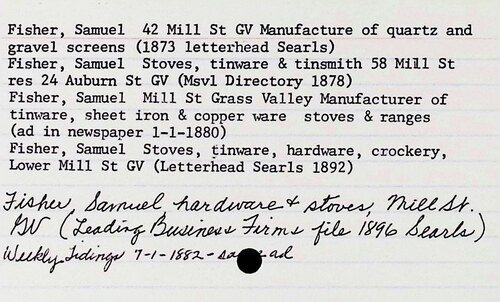 Fisher, Samuel 42 Mill St GV Manufacture of quartz and
gravel screens (1873 letterhead Searls)
Fisher, Samuel Stoves, tinware & tinsmith 58 Mill St
res 24 Auburn St GV (Msvl Directory 1878)
Fisher, Samuel Mill St Grass Valley Manufacturer of
tinware, sheet iron & copper ware stoves & ranges
(ad in newspaper 1-1-1880)
Fisher, Samuel Stoves, tinware, hardware, crockery,
Lower Mill St GV (Letterhead Searls 1892)
Fisher, Samuel hardware & stoves, Mill St.
GV (Leading Business Firms file 1896 Searls)
Weekly Tidings 7-1-1882 - ad